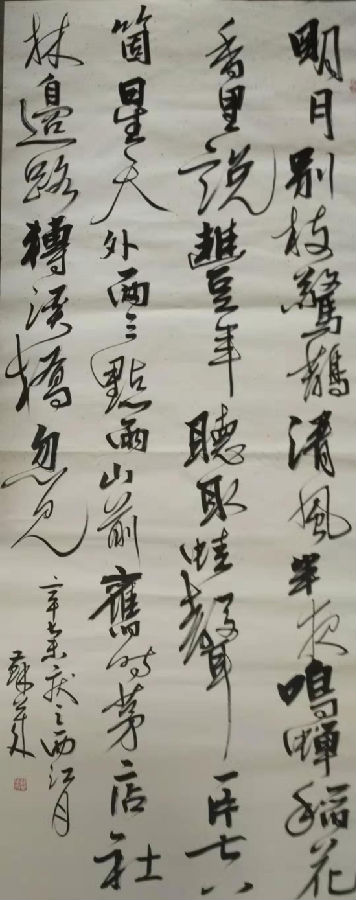 明月別枝驚鵲清風半夜鳴蟬稻花
香里說豐年聽取蛙聲一片七八
箇星天外兩三點雨山前舊時茅店社
林邊路轉溪橋忽見
辛棄疾之西江月